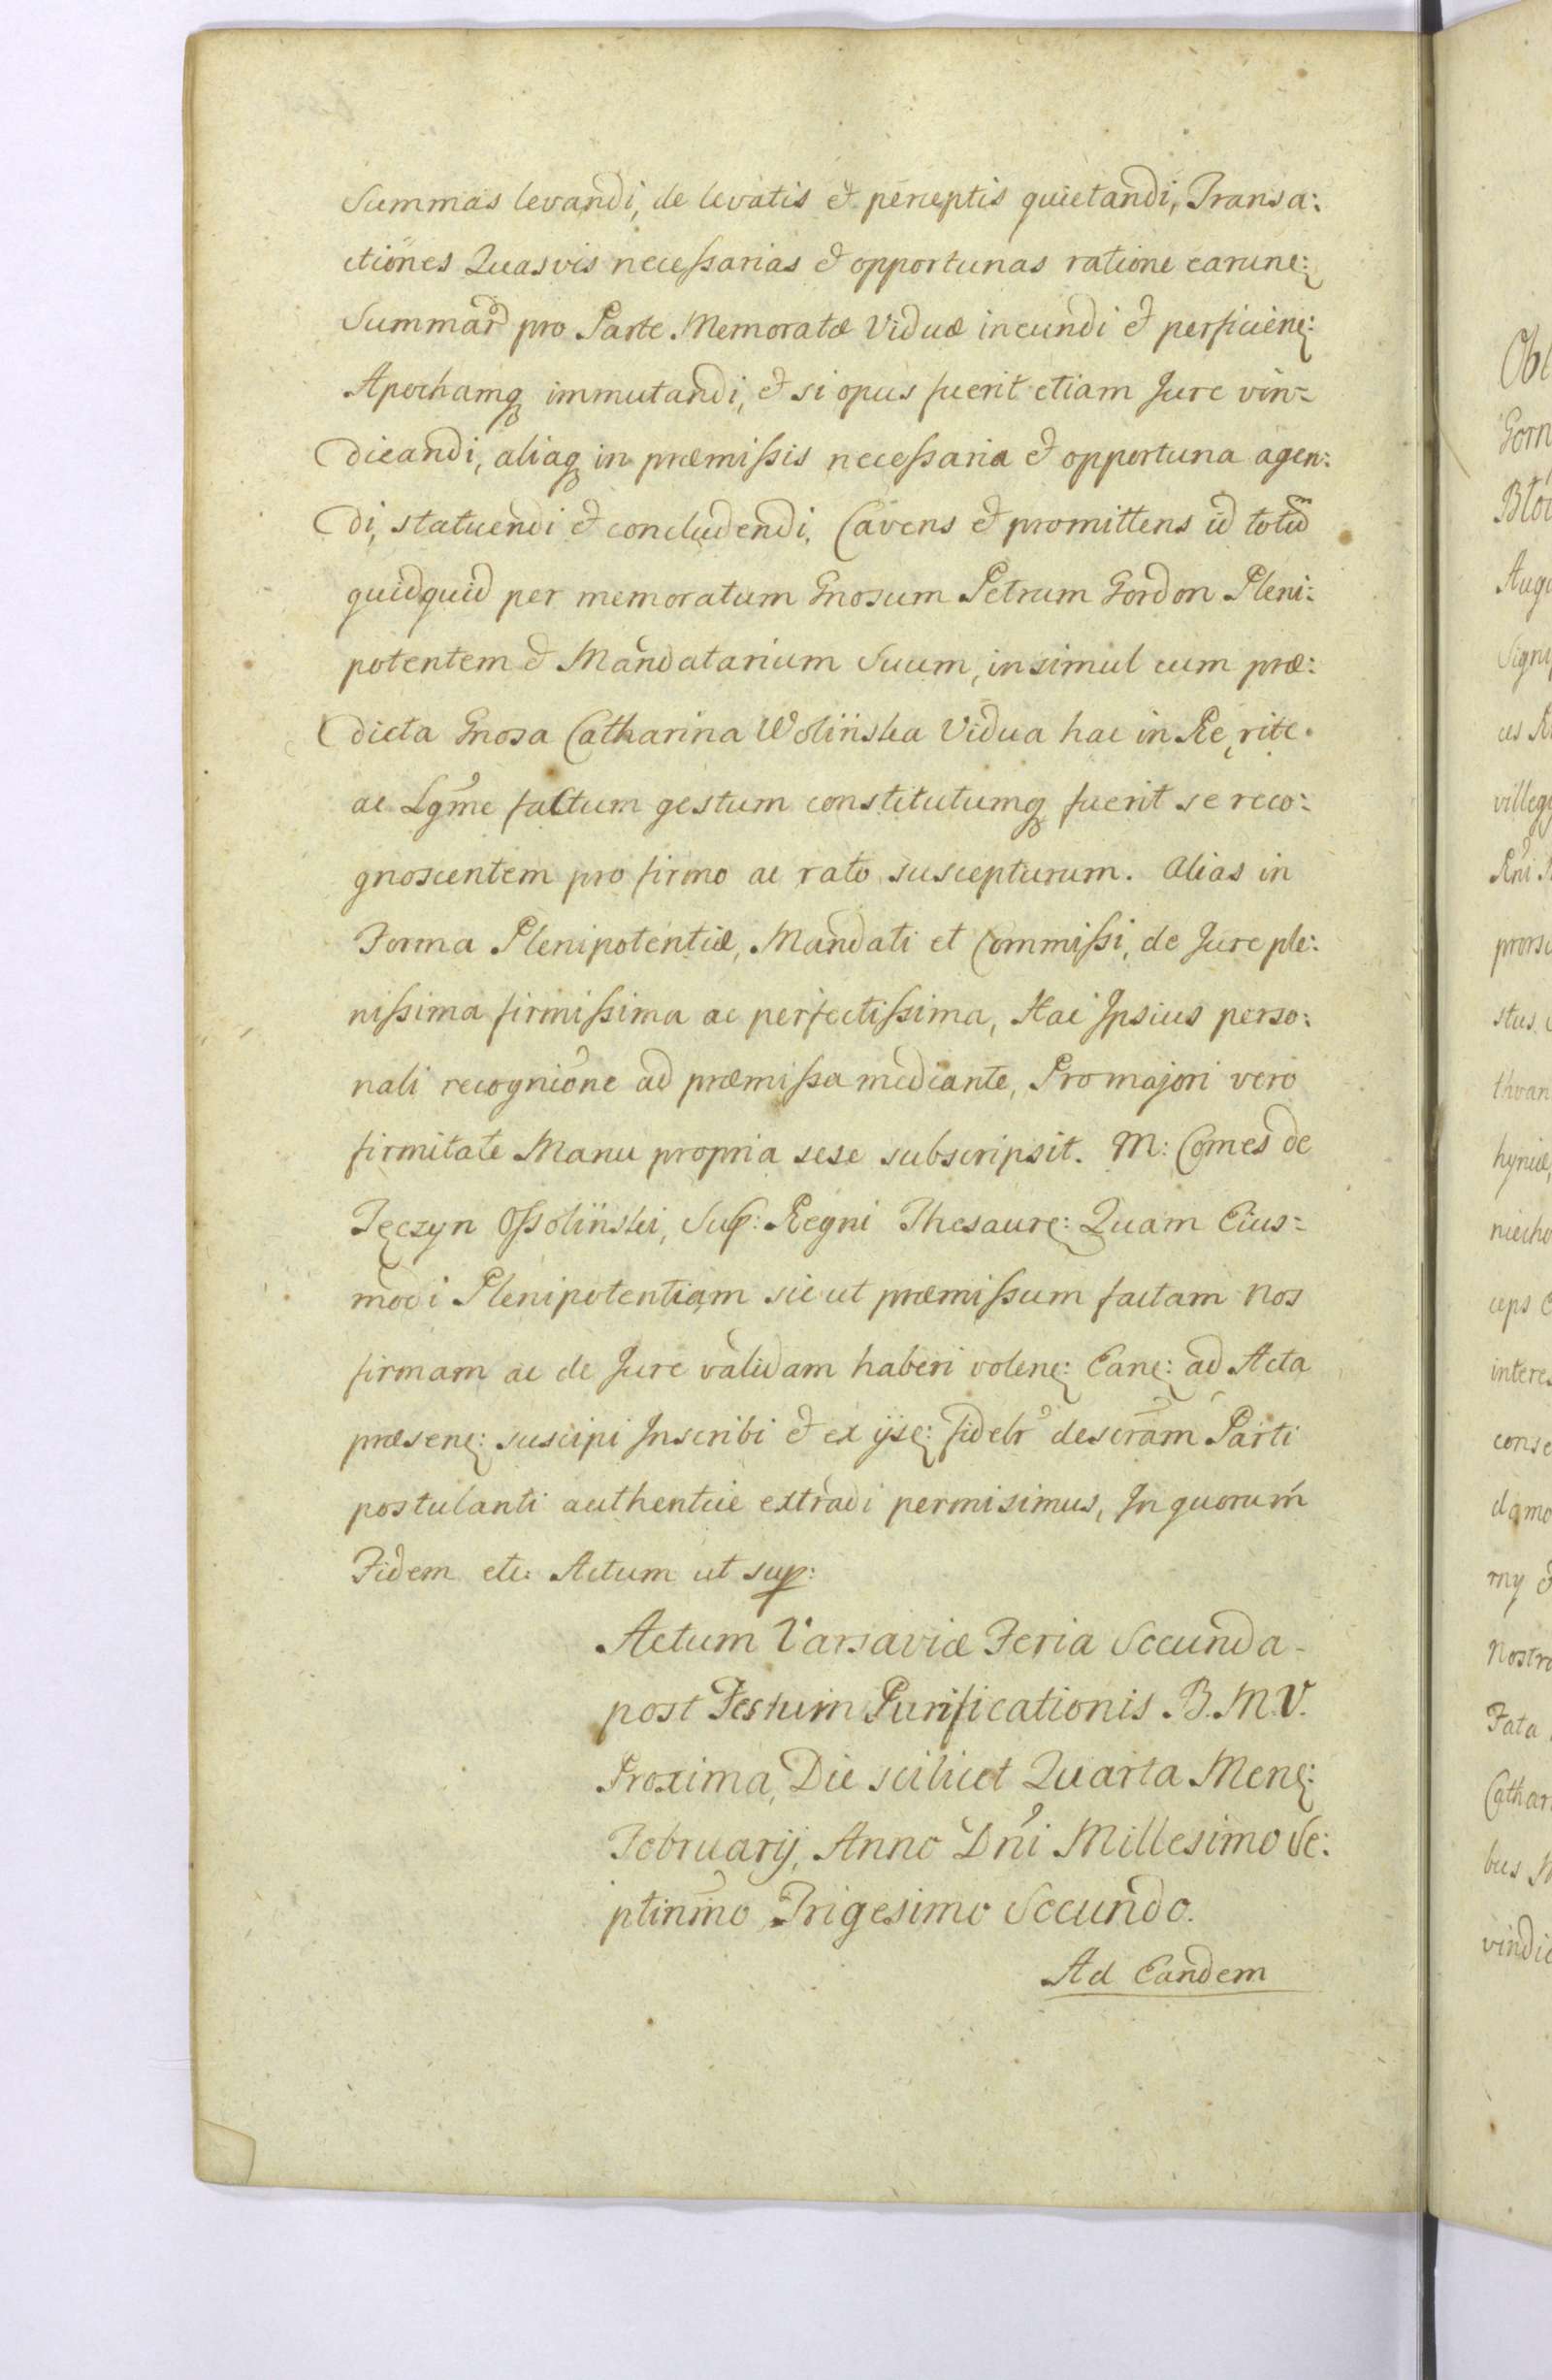 Summas levandi, de levatis et perceptis quietandi, Transa:
ctiones Quasvis necessarias et opportunas ratione earunę:
Summarũ pro Parte Memoratæ Viduæ ineundi et perficienę:
Apochamq̨ immutandi, et si opus fuerit etiam Jure vin-
dicandi, aliaq̨ in præmissis necessaria et opportuna agen:
di, statuendi et concludendi, Cavens et promittens id totũ
quidquid per memoratum Gnosum Petrum Gordon Pleni:
potentem et Mandatarium Suum, insimul cum præ:
dicta Gnosa Catharina Wolińska Vidua hac in Re, rite
ac Lgme factum gestum constitutumq̨ fuerit se reco:
gnoscentem pro firmo ac rato suscepturum. Alias in
Forma Plenipotentiæ, Mandati et Commissi, de Jure ple:
nissima firmissima ac perfectissima, Hac Ipsius perso:
nali recognione ad præmissa mediante, Pro majori vero
firmitate Manu propria sese subscripsit. M: Comes de
Tęczyn Ossoliński, Sup: Regni Thesaurę: Quam Eius-
modi Plenipotentiam sic ut præmissum factam Nos
firmam ac de Jure validam haberi volenę: Eanę: ad Acta
præsenę: suscipi Inscribi et ex ijsę: fidelr descram Parti
postulanti authentice extradi permisimus, In quorum
Fidem etc: Actum ut sup:
Actum Varsaviæ Feria Secunda
post Festum Purificationis B.M.V.
Proxima, Die scilicet Quarta Menę:
Februarij, Anno Dni Millesimo Se:
ptinmo Trigesimo Secundo.
Ad Eandem
Obl
Gorn
Bło
Augu
Signi
us R
villeg
Rni
prors
stus
thvan
hyniæ,
niecho
ceps
intere
conse
damo
rny et
Nostr
Fata
Cathar
bus M
vindic